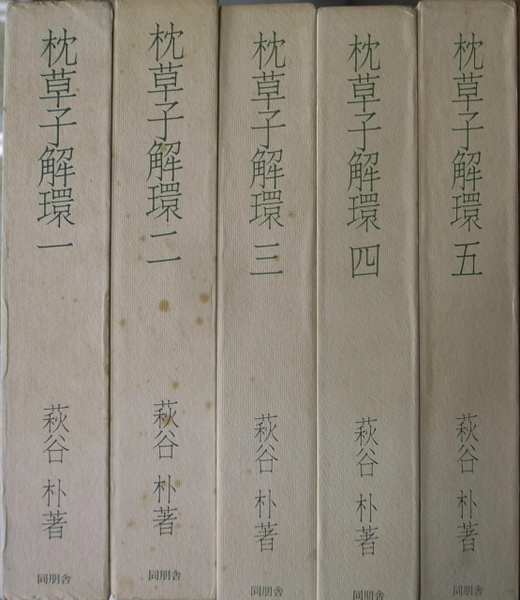 枕草子解環 一
萩谷 朴著
同朋舎
枕草子解環 二
萩谷 朴著
同朋舎
枕草子解環 三
萩谷 朴著
同朋舎
枕草子解環 四
萩谷 朴著
同朋舎
枕草子解環 五
萩谷 朴著
同朋舎